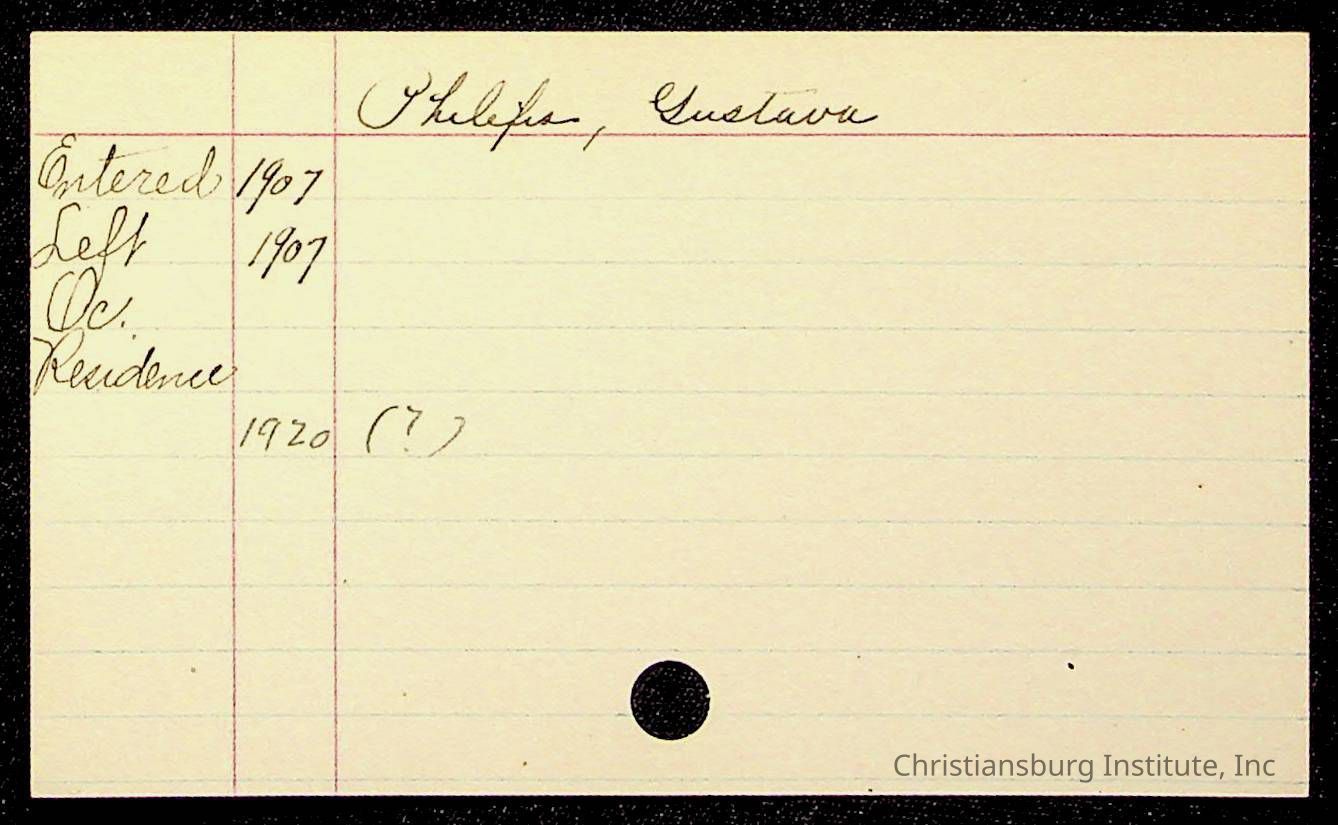 Philips, Gustava
Entered 1907
Left 1907
Oc.
Residence
1920 (?)
Christiansburg Institute, Inc